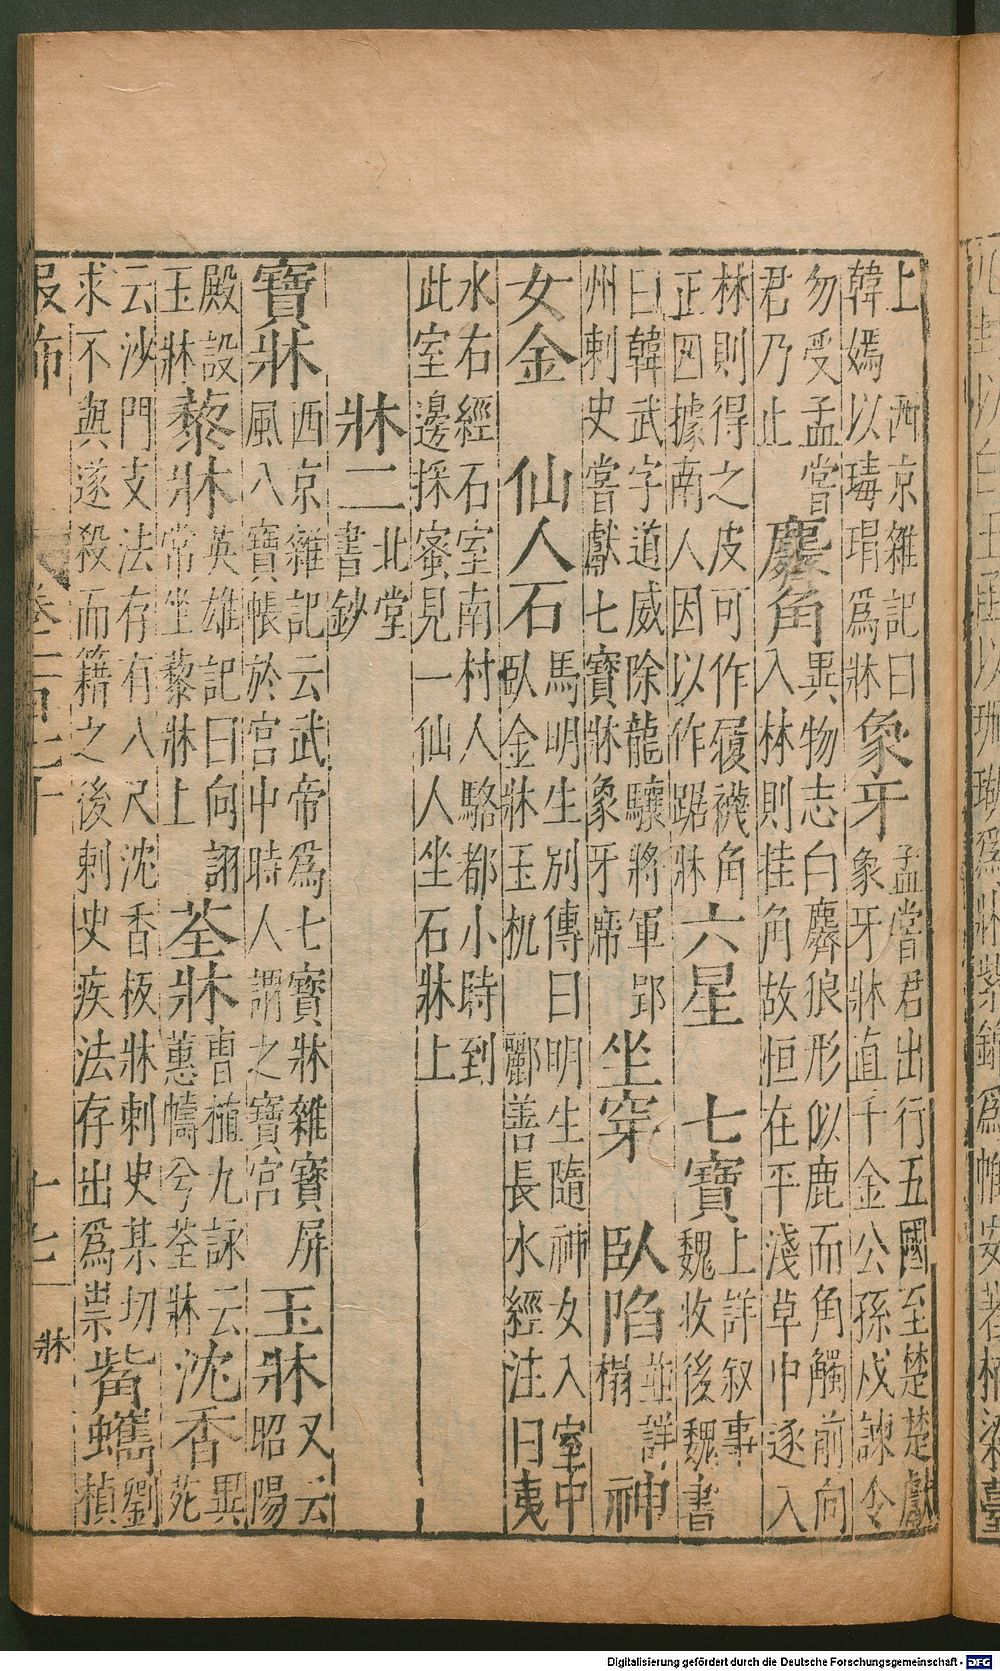 以珊瑚爲牀紫錦爲帷安著栢梁臺
上 西京雜記曰韓嫣以瑇瑁爲牀 象牙 孟嘗君出行五國至楚楚獻象牙牀直千金公孫戍諫令
勿受孟嘗君乃止 麞角 異物志白麞狼形似鹿而角觸前向入林則挂角故恒在平淺草中逐入
林則得之皮可作履襪角正四據南人因以作踞牀 六星 七寶 上詳叙事魏收後魏書
曰韓武字道威除龍驤將軍郢州刺史嘗獻七寶牀象牙席 坐穿 臥陷 並詳榻 神
女金 仙人石 馬明生別傳曰明生隨神女入室中臥金牀玉机 酈善長水經注曰夷
水右經石室南村人駱都小時到此室邊採蜜見一仙人坐石牀上
牀二 北堂書鈔
寶牀 西京雜記云武帝爲七寶牀雜寶屏風八寶帳於宮中時人謂之寶宮 玉牀 又云昭陽
殿設玉牀 藜牀 英雄記曰向詡常坐藜牀上 荃牀 曹植九詠云蕙幬兮荃牀 沈香 異苑
云沙門支法存有八尺沈香板牀刺史某切求不與遂殺而籍之後刺史疾法存出爲祟 觜蠵 劉楨
服飾 卷二百七十 十七 牀
Digitalisierung gefördert durch die Deutsche Forschungsgemeinschaft - DFG